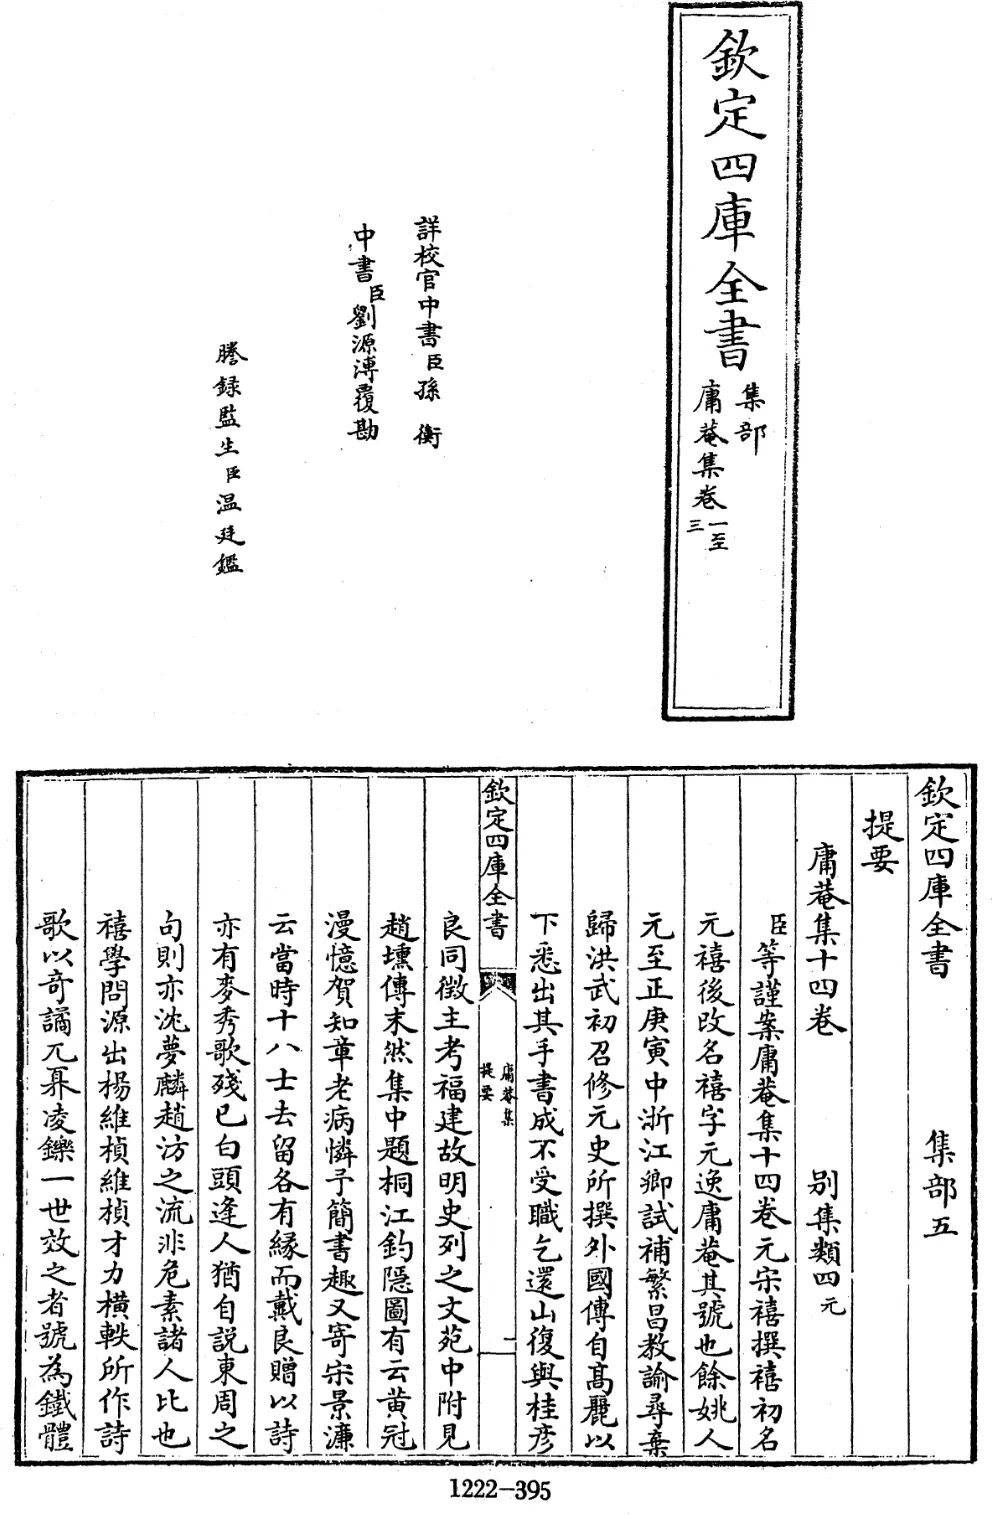 欽定四庫全書
集部
庸菴集卷一至三
詳校官中書臣孫衡
中書臣劉源溥覆勘
謄録監生臣温廷鑑
欽定四庫全書 集部五
提要
庸菴集十四卷 别集類四元
臣等謹案庸菴集十四卷元宋禧撰禧初名
元禧後改名禧字元逸庸菴其號也餘姚人
元至正庚寅中浙江鄉試補繁昌教諭尋棄
歸洪武初召修元史所撰外國傳自髙麗以
下悉出其手書成不受職乞還山復與桂彦
欽定四庫全書
庸菴集
提要
一
良同徵主考福建故明史列之文苑中附見
趙壎傳末然集中題桐江釣隱圖有云黄冠
漫憶賀知章老病憐予簡書趣又寄宋景濂
云當時十八士去留各有緣而戴良贈以詩
亦有麥秀歌殘已白頭逢人猶自説東周之
句則亦沈夢麟趙汸之流非危素諸人比也
禧學問源出楊維楨維楨才力横軼所作詩
歌以奇譎兀奡凌鑠一世效之者號為鐵體
1222-395